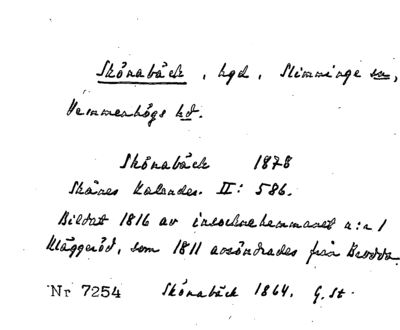 Skönabäck, hgd, Slimminge sn,
Vemmenhögs hd.
Skönabäck 1878
Skånes Kalender. II: 586.
Bildat 1816 av insocknehemmanet n:r 1
Kläggeröd, som 1811 avsöndrades från Brodda.
Nr 7254 Skönabäck 1864. G. St.